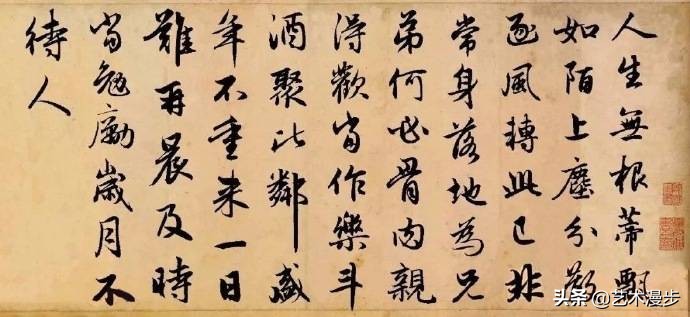 人生無根蒂飄
如陌上塵分散
逐風轉此已非
常身落地為兄
弟何必骨肉親
得歡當作樂斗
酒聚比鄰盛
年不重来一日
難再晨及時
當勉勵歲月不
待人
头条 @艺术漫步